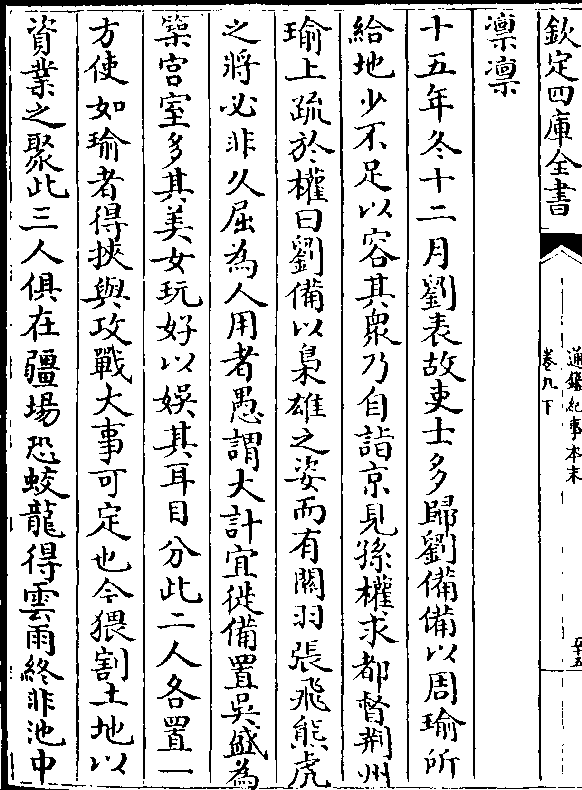 欽定四庫全書
通鑑紀事本末
卷九下
凛凛
十五年冬十二月劉表故吏士多歸劉備備以周瑜所
給地少不足以容其衆乃自詣京見孫權求都督荆州
瑜上疏於權曰劉備以梟雄之姿而有關羽張飛熊虎
之將必非久屈為人用者愚謂大計宜徙備置吳盛為
築宫室多其美女玩好以娱其耳目分此二人各置一
方使如瑜者得挾與攻戰大事可定也今猥割土地以
資業之聚此三人俱在疆場恐蛟龍得雲雨終非池中